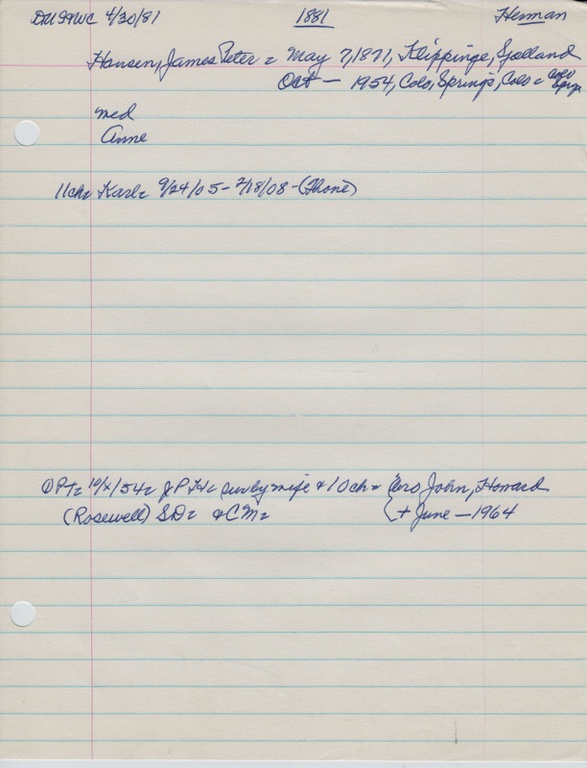 4/30/81 1881 Herman
Hansen, James Peter = May 7, 1871, Klippinge, Sjelland
Oct — 1954, Colo, Springs, Colo =
med
Anne
11ch= Karl= 9/24/05 - 2/18/08 - (Thone)
OPT= 10/x/54= JPH= surv by wife + 10ch = Bro John, Howard
(Rosewell) SD= + CM= + June — 1964